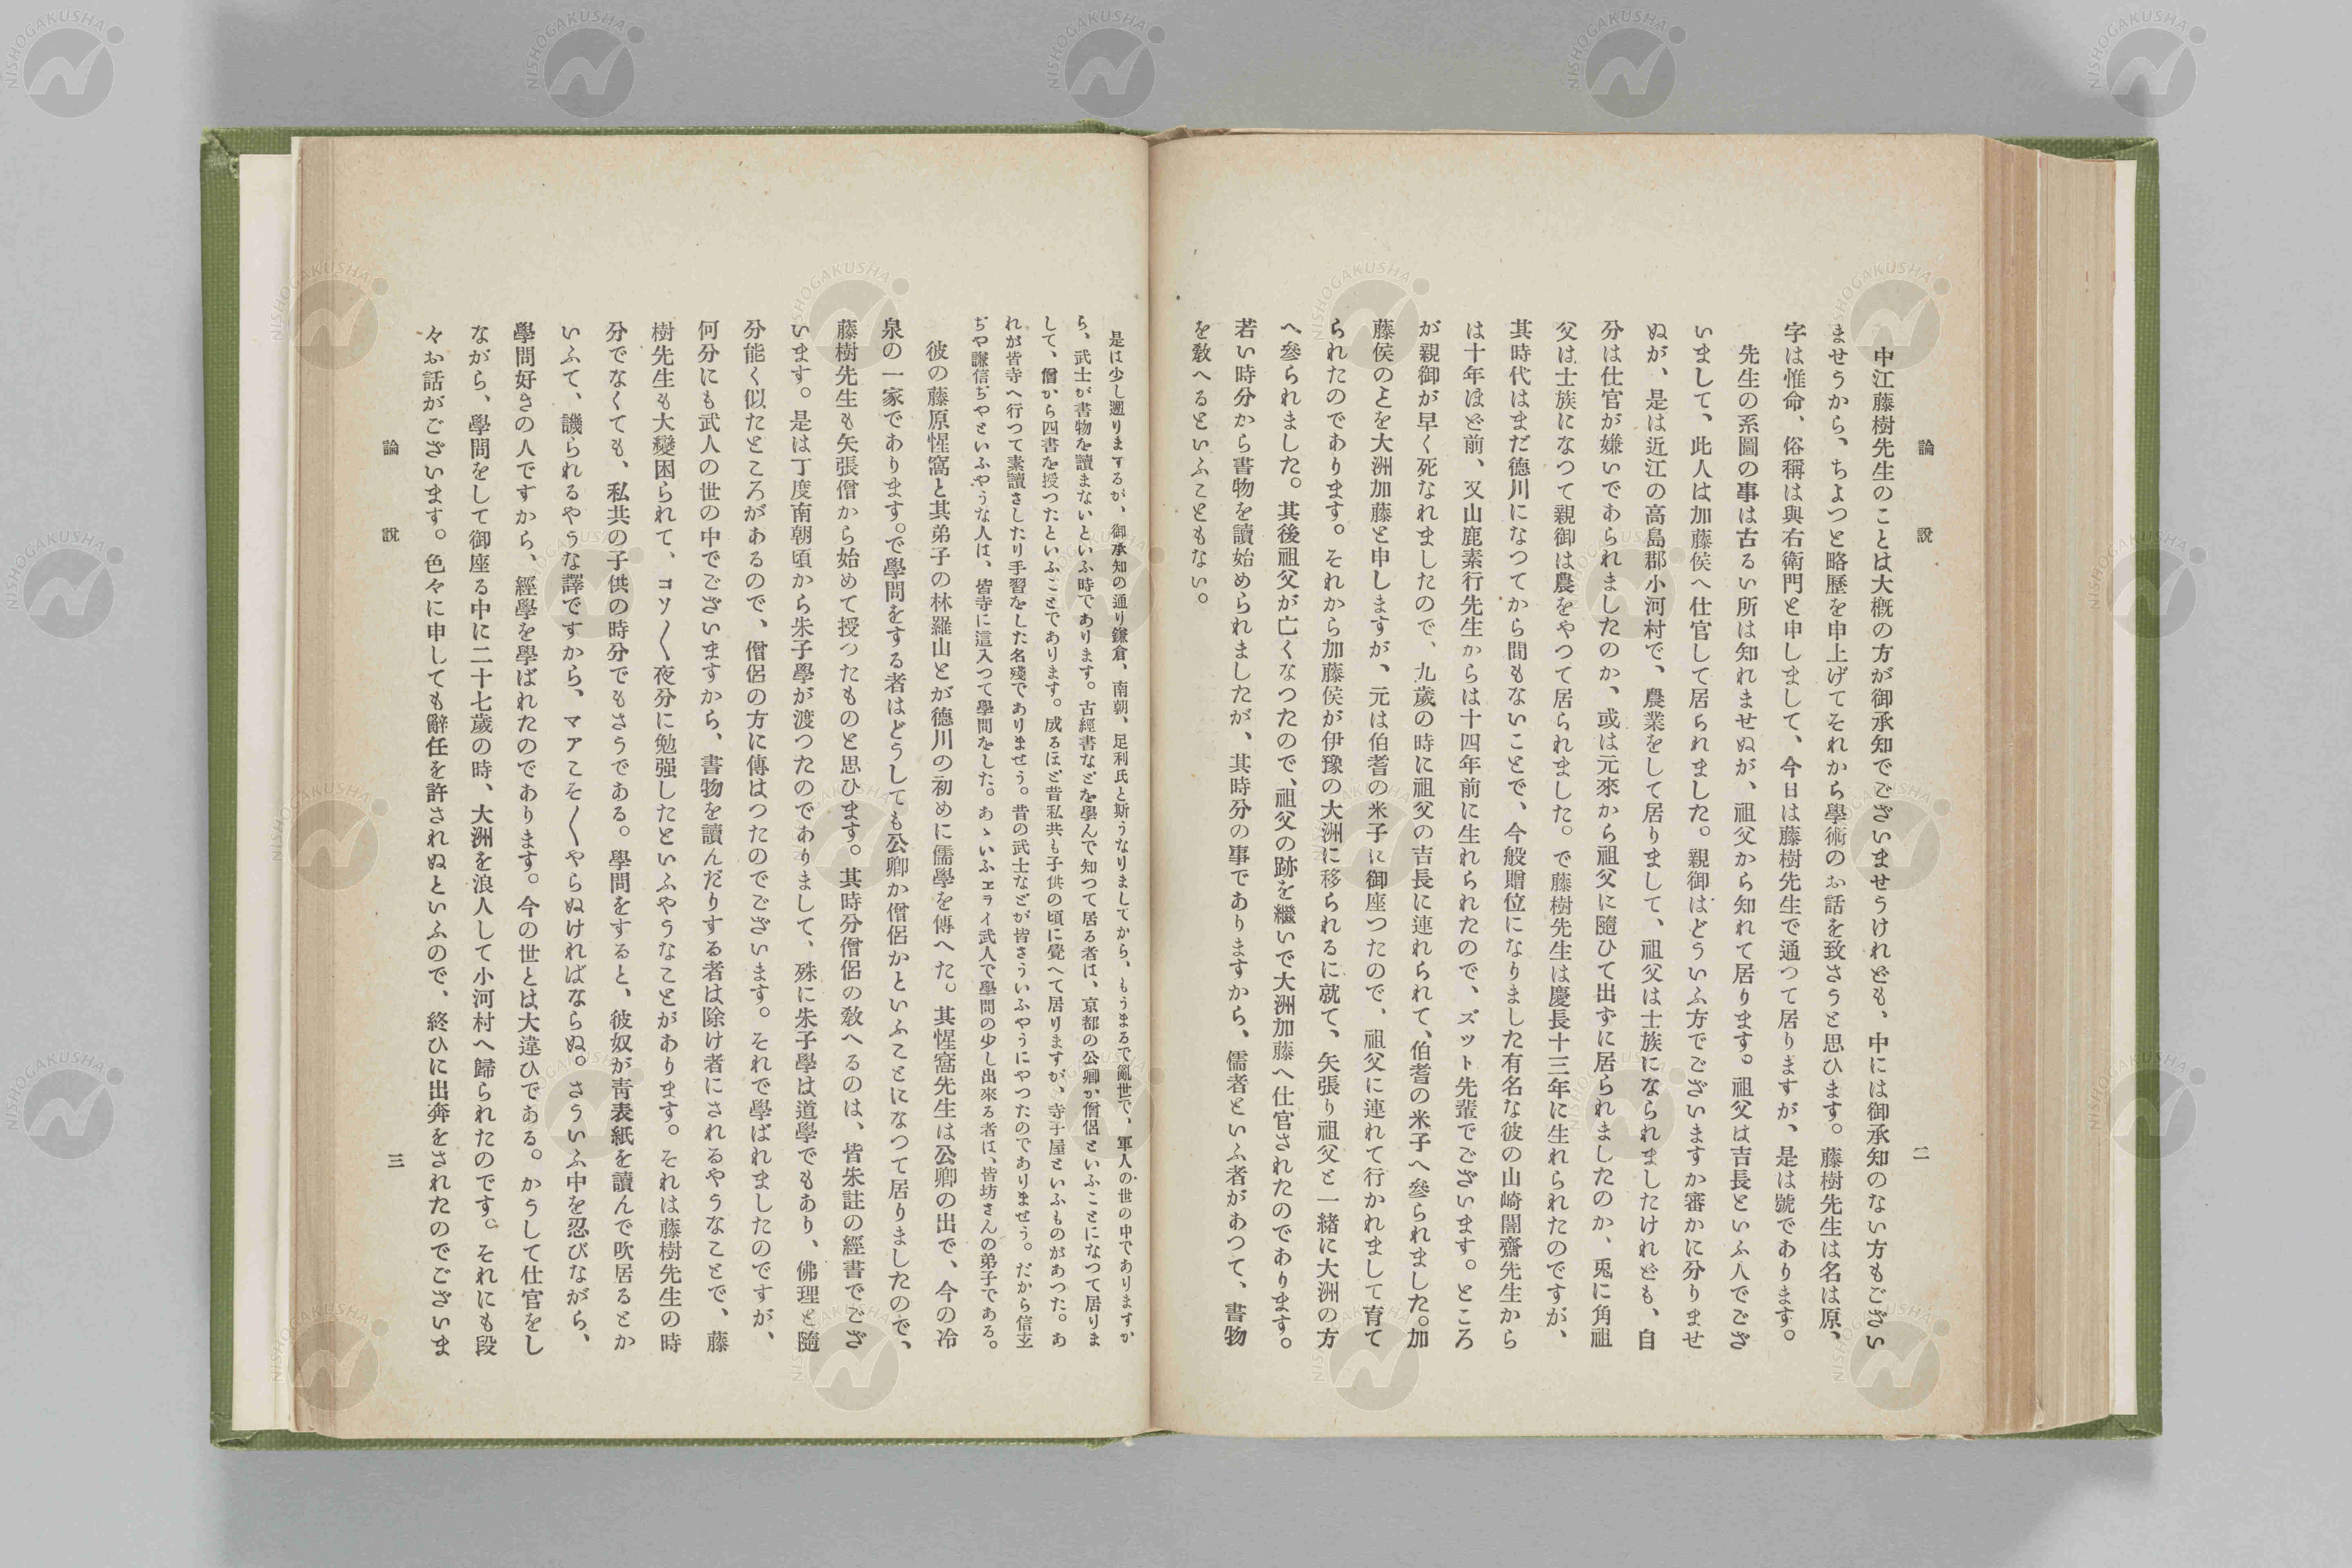 論説
二
中江藤樹先生のことは大概の方が御承知でございませうけれども、中には御承知のない方もござい
ませうから、ちよつと略歷を申上げてそれから學術のお話を致さうと思ひます。藤樹先生は名は原、
字は惟命、俗稱は與右衛門と申しまして、今日は藤樹先生で通つて居りますが、是は號であります。
先生の系圖の事は古るい所は知れませぬが、祖父から知れて居ります。祖父は吉長といふ人でござ
いまして、此人は加藤侯へ仕官して居られました。親御はどういふ方でございますか審かに分りませ
ぬが、是は近江の高島郡小河村で、農業をして居りまして、祖父は士族になられましたけれども、自
分は仕官が嫌いであられましたのか、或は元來から祖父に隨ひて出ずに居られましたのか、兎に角祖
父は士族になつて親御は農をやつて居られました。で藤樹先生は慶長十三年に生れられたのですが、
其時代はまだ德川になつてから間もないことで、今般贈位になりました有名な彼の山崎闇齋先生から
は十年ほど前、又山鹿素行先生からは十四年前に生れられたので、ズット先輩でございます。ところ
が親御が早く死なれましたので、九歲の時に祖父の吉長に連れられて、伯耆の米子へ參られました。加
藤侯のとを大洲加藤と申しますが、元は伯耆の米子に御座つたので、祖父に連れて行かれまして育て
られたのであります。それから加藤侯が伊豫の大洲に移られるに就て、矢張り祖父と一緒に大洲の方
へ參られました。其後祖父が亡くなつたので、祖父の跡を繼いで大洲加藤へ仕官されたのであります。
若い時分から書物を讀始められましたが、其時分の事でありますから、儒者といふ者があつて、書物
を敎へるといふこともない。
是は少し遡りまするが、御承知の通り鎌倉、南朝、足利氏と斯うなりましてから、もうまるで亂世で、軍人の世の中でありますか
ら、武士が書物を讀まないといふ時であります。古經書などを學んで知つて居る者は、京都の公卿か僧侶といふことになつて居りま
して、僧から四書を授つたといふことであります。成るほど昔私共も子供の頃に覺へて居りますが、寺子屋といふものがあつた。あ
れが皆寺へ行つて素讀さしたり手習をした名殘でありませう。昔の武士などが皆さういふやうにやつたのでありませう。だから信玄
ぢや謙信ぢやといふやうな人は、皆寺に這入つて學問をした。あゝいふヱライ武人で學問の少し出來る者は、皆坊さんの弟子である。
彼の藤原惺窩と其弟子の林羅山とが德川の初めに儒學を傳へた。其惺窩先生は公卿の出で、今の冷
泉の一家であります。で學問をする者はどうしても公卿か僧侶かといふことになつて居りましたので、
藤樹先生も矢張僧から始めて授つたものと思ひます。其時分僧侶の敎へるのは、皆朱註の經書でござ
います。是は丁度南朝頃から朱子學が渡つたのでありまして、殊に朱子學は道學でもあり、佛理と隨
分能く似たところがあるので、僧侶の方に傳はつたのでございます。それで學ばれましたのですが、
何分にも武人の世の中でございますから、書物を讀んだりする者は除け者にされるやうなことで、藤
樹先生も大變困られて、コソ〱夜分に勉强したといふやうなことがあります。それは藤樹先生の時
分でなくても、私共の子供の時分でもさうである。學問をすると、彼奴が靑表紙を讀んで吹居るとか
いふて、譏られるやうな譯ですから、マアこそ〱やらぬければならぬ。さういふ中を忍びながら、
學問好きの人ですから、經學を學ばれたのであります。今の世とは大違ひである。かうして仕官をし
ながら、學問をして御座る中に二十七歲の時、大洲を浪人して小河村へ歸られたのです。それにも段
々お話がございます。色々に申しても辭任を許されぬといふので、終ひに出奔をされたのでございま
論説
三